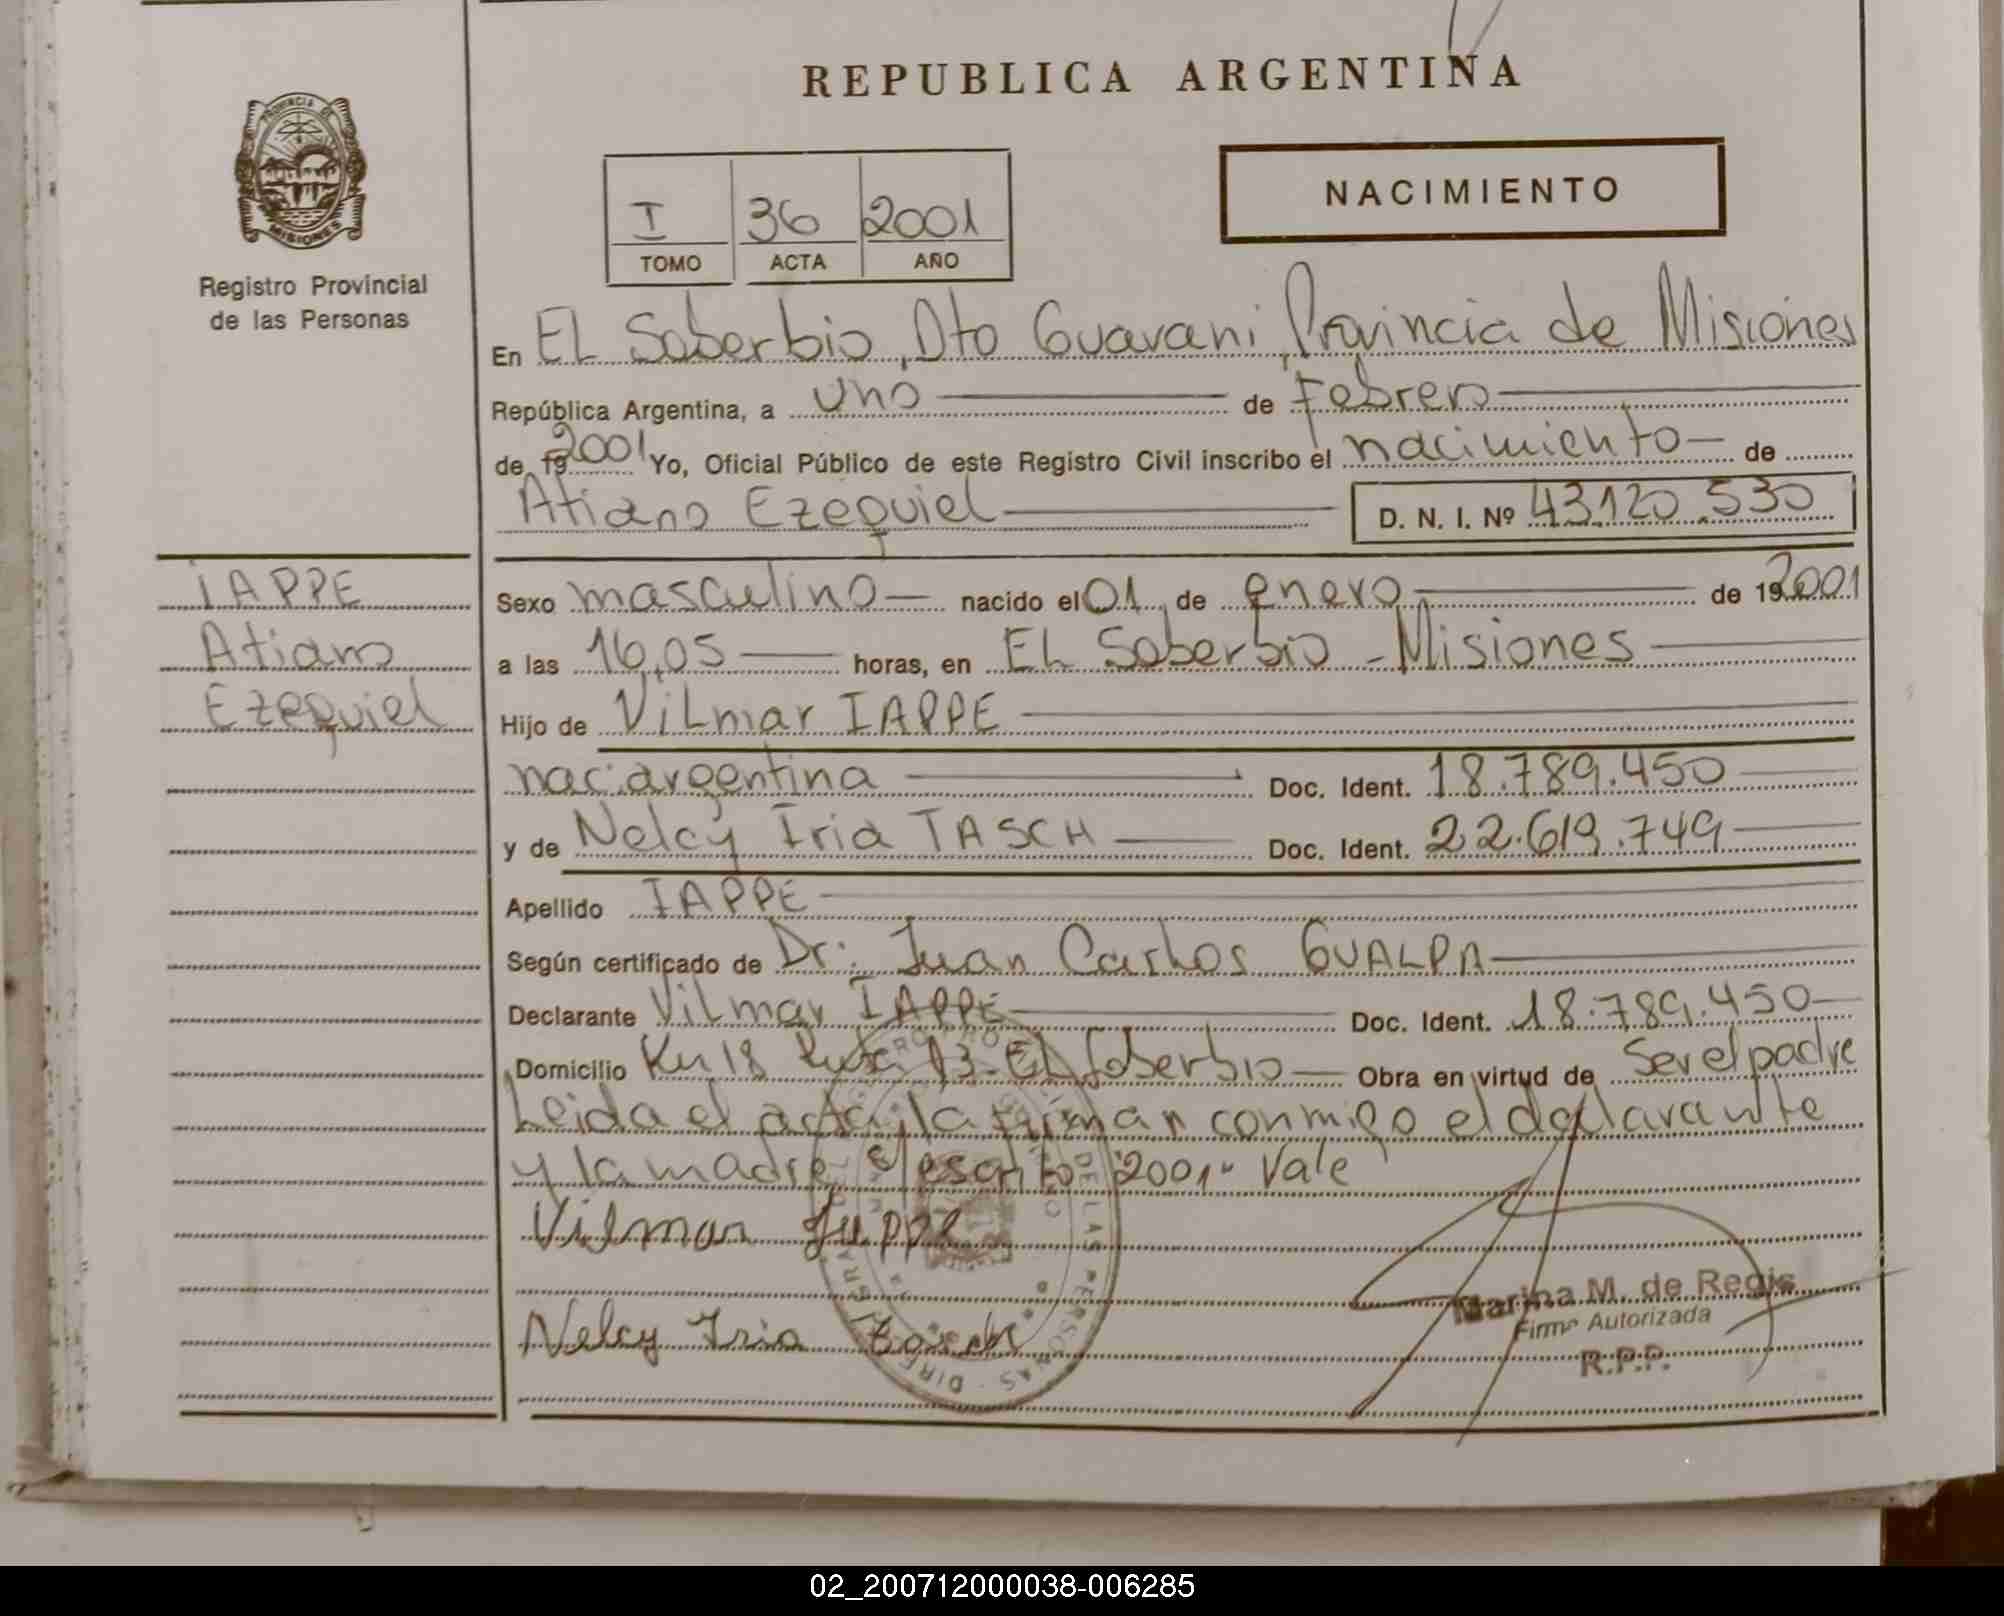 REPUBLICA ARGENTINA
PROVINCIA DE
MISIONES
Registro Provincial
de las Personas
NACIMIENTO
I 36 2001
TOMO ACTA AÑO
En EL Soberbio, Dto Guarani, Provincia de Misiones
República Argentina, a uno de Febrero
de 19 2001 Yo, Oficial Público de este Registro Civil inscribo el nacimiento de
Atiano Ezequiel D. N. I. Nº 43.120.530
IAPPE
Atiano
Ezequiel
Sexo masculino nacido el 01 de enero de 19 2001
a las 16,05 horas, en EL Soberbio - Misiones
Hijo de Vilmar IAPPE
nac. argentina Doc. Ident. 18.789.450
y de Nelcy Iria TASCH Doc. Ident. 22.619.749
Apellido IAPPE
Según certificado de Dr: Juan Carlos GUALPA
Declarante Vilmar IAPPE Doc. Ident. 18.789.450
Domicilio Km 18 Ruta 13 - EL Soberbio Obra en virtud de Ser el padre
Leida el acta, la firman conmigo el declarante
y la madre. S/escrito "2001" Vale
Vilmar Iappe
Nelcy Iria Tasch
Marina M. de Regis
Firma Autorizada
R.P.P.
DE LAS PERSONAS
02_200712000038-006285